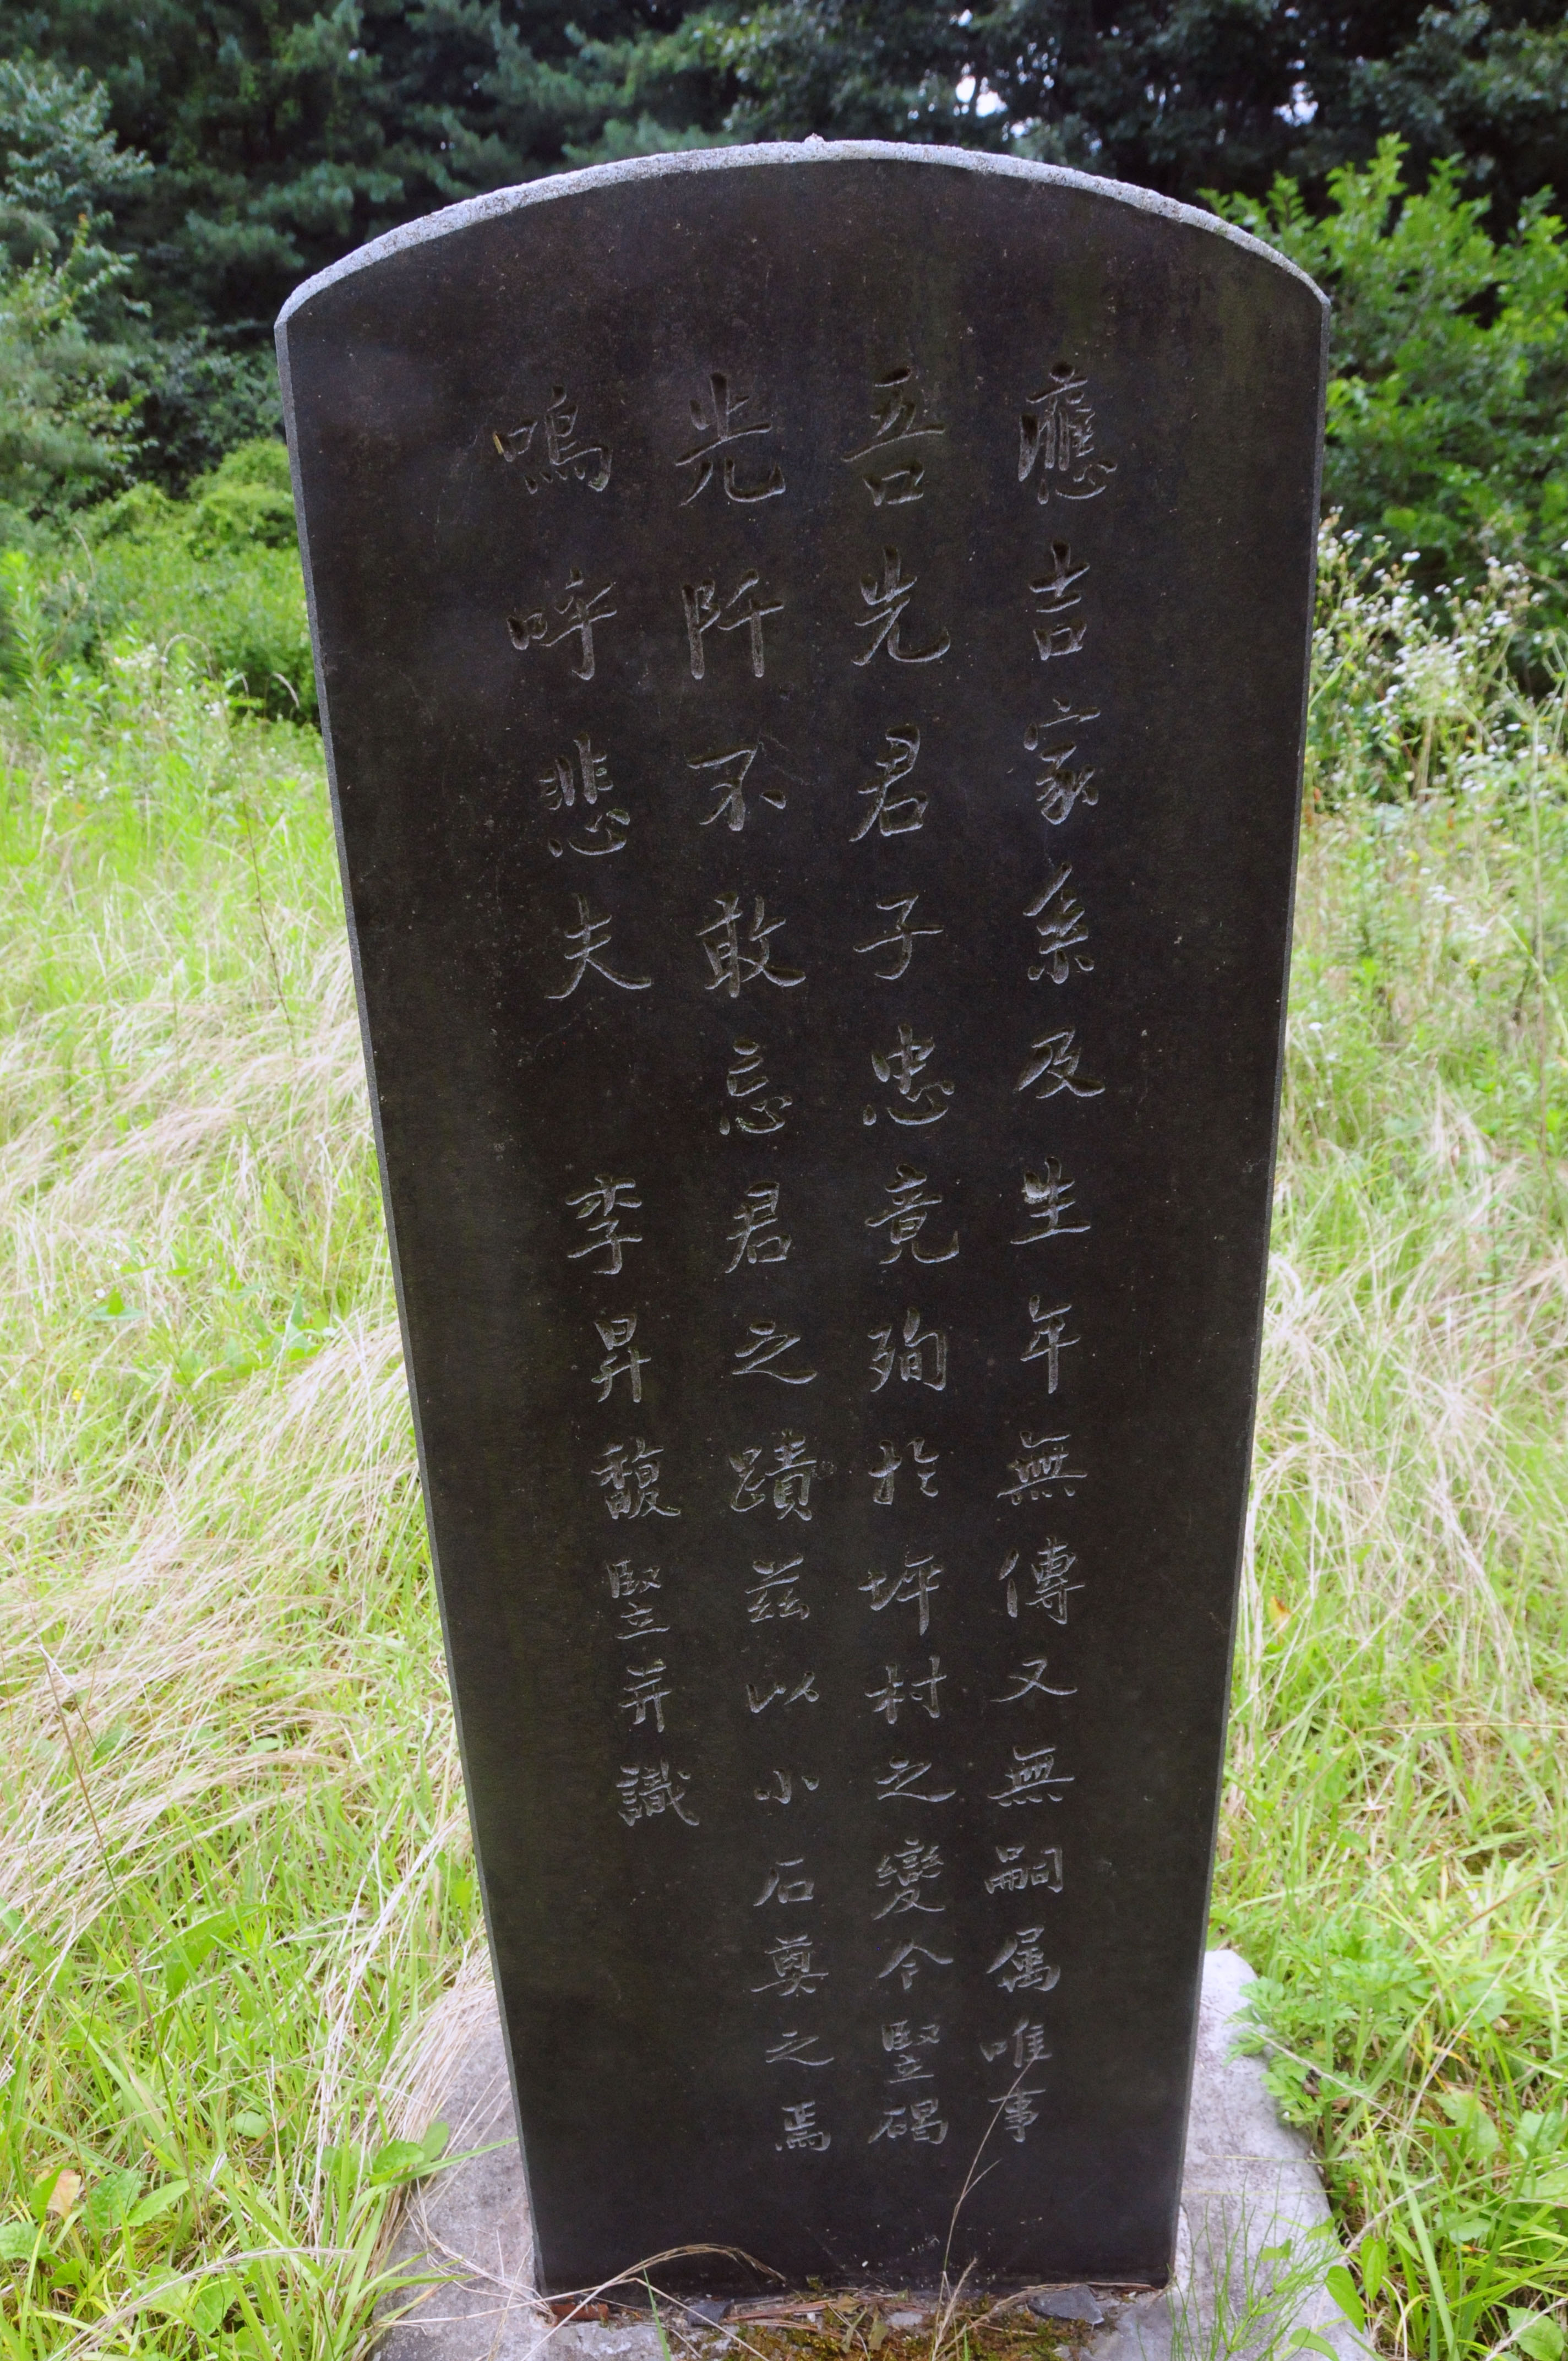 應吉家系及生年無傳又無嗣属唯事
吾先君子忠竟殉於坪村之變今竪碣
光阡不敢忘君之蹟茲以小石奠之焉
嗚呼悲夫 李昇馥竪并識